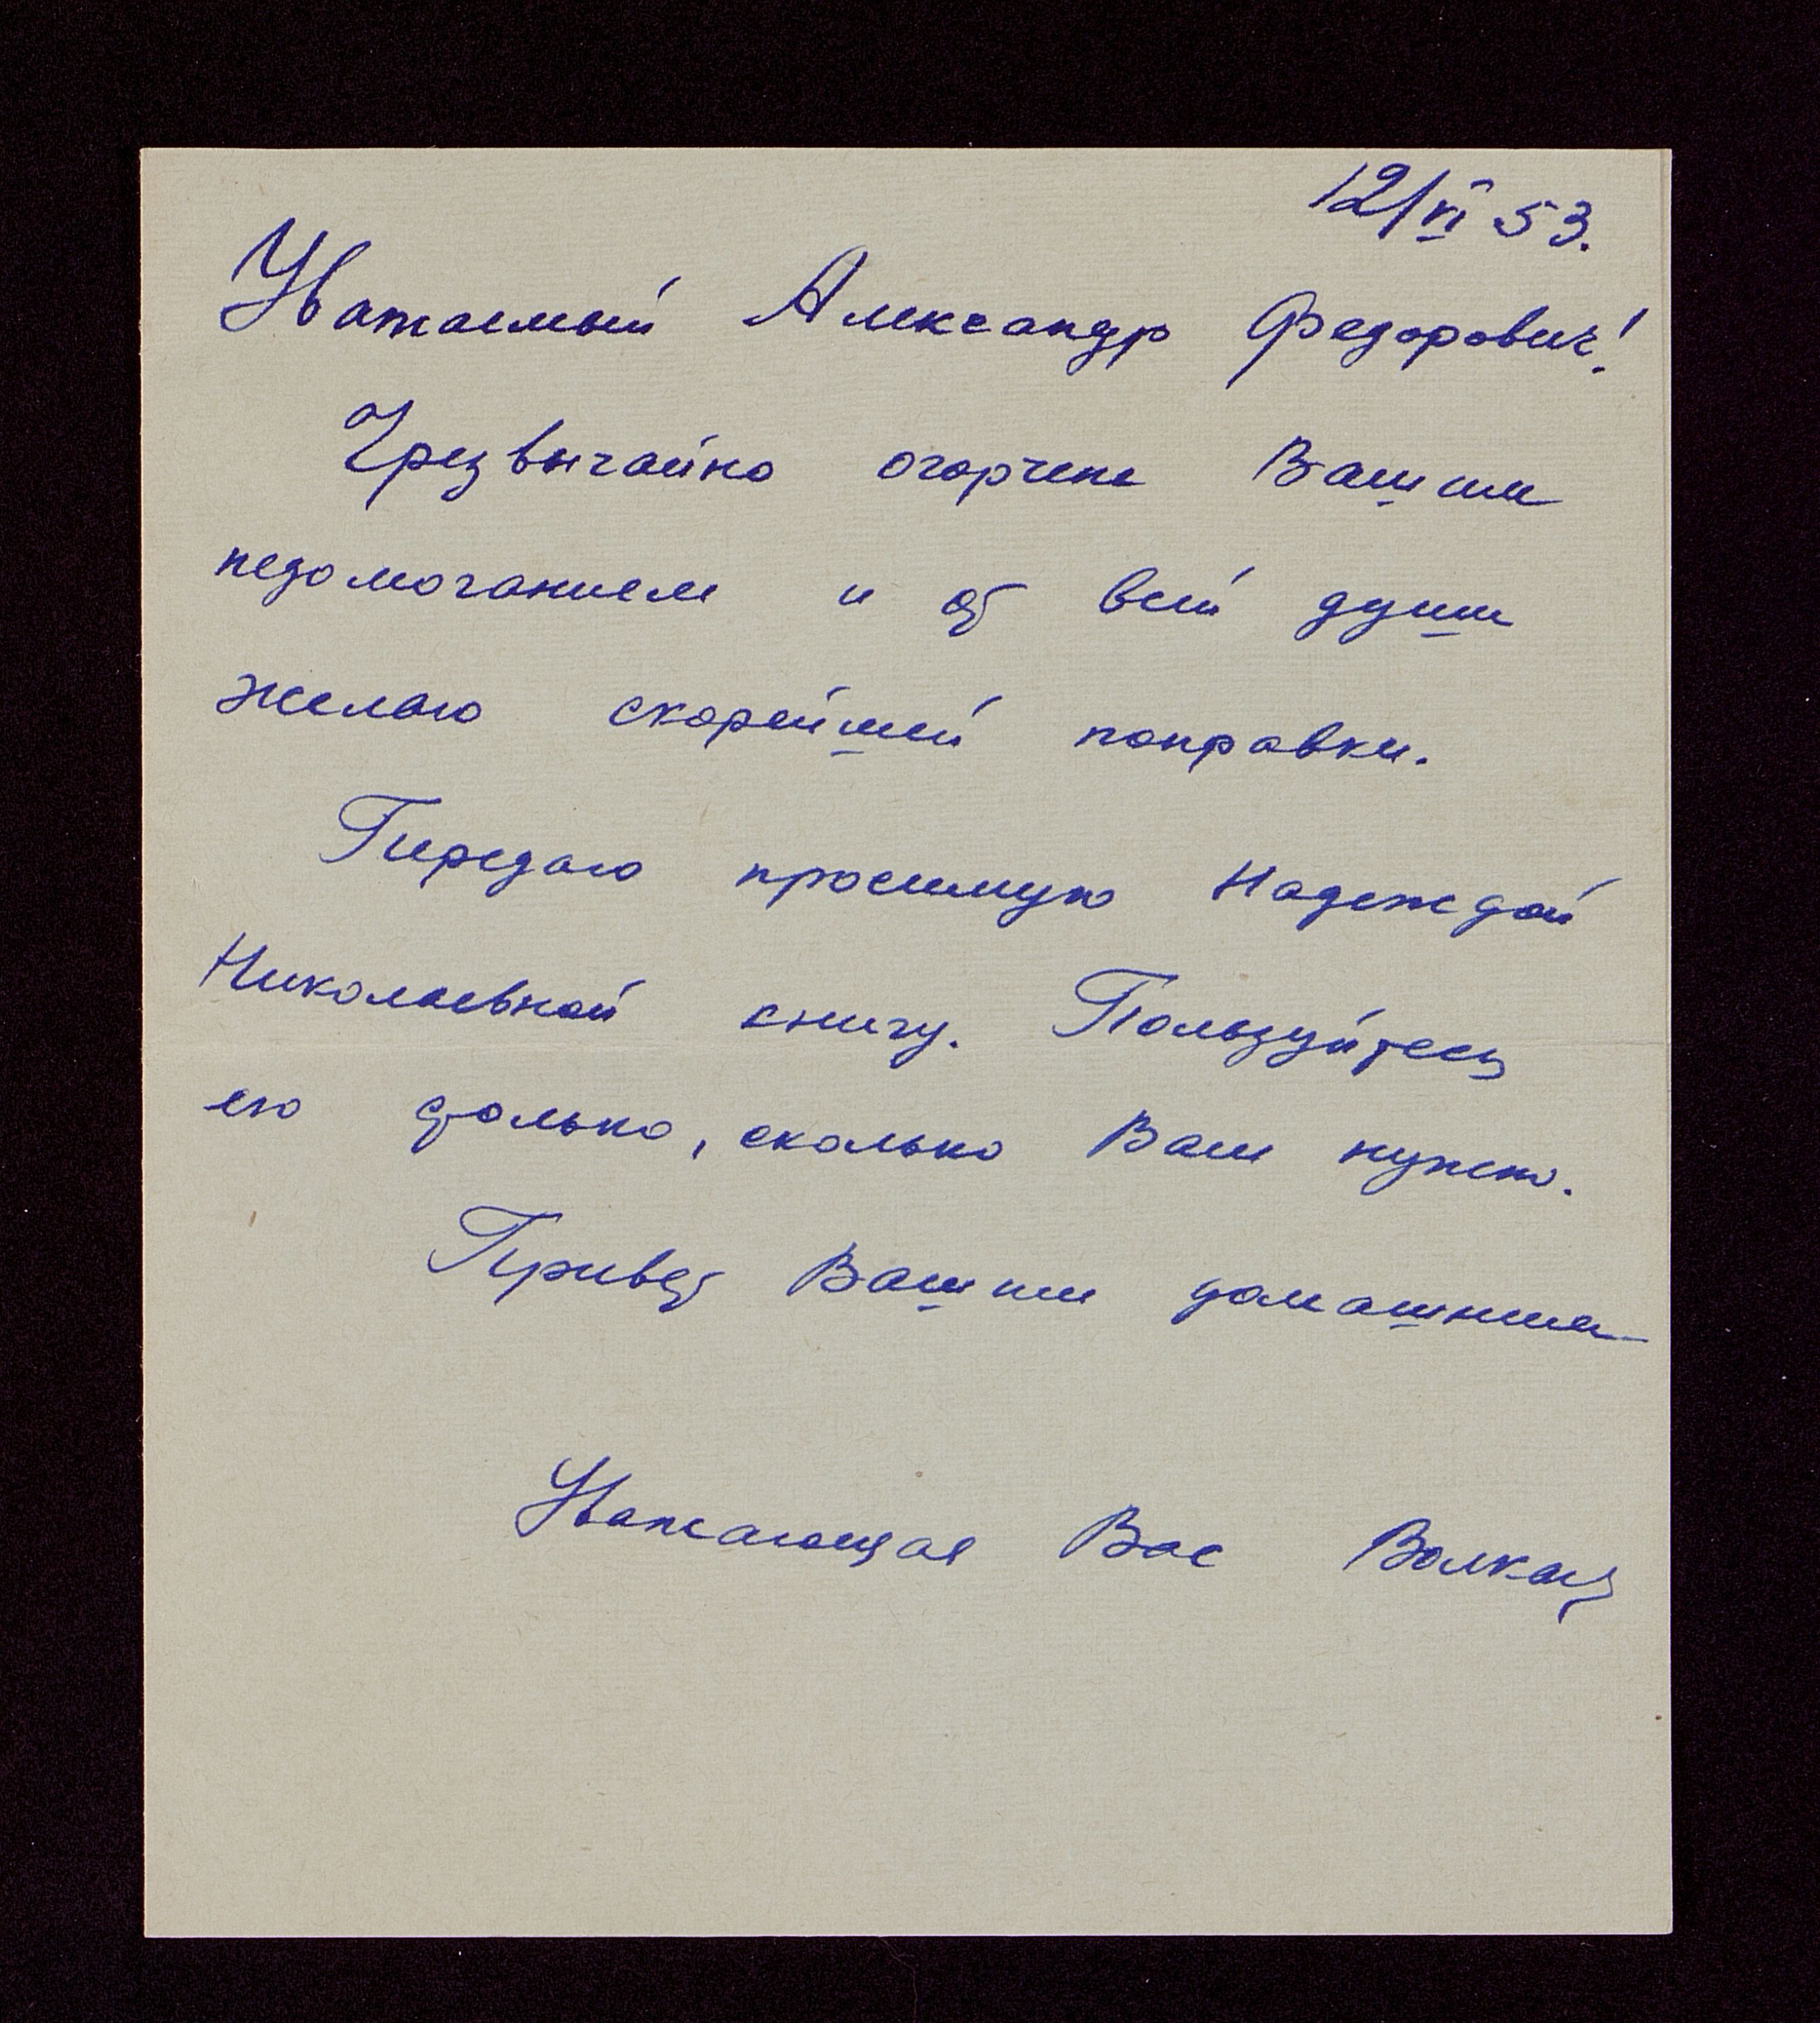 12/VI 53.
Уважаемый Александр Федорович!
Чрезвычайно огорчена Вашим
недомоганием и от всей души
желаю скорейшей поправки.
Передаю просимую Надеждой
Николаевной книгу. Пользуйтесь
ею столько, сколько Вам нужно.
Привет Вашим домашним
Уважающая Вас